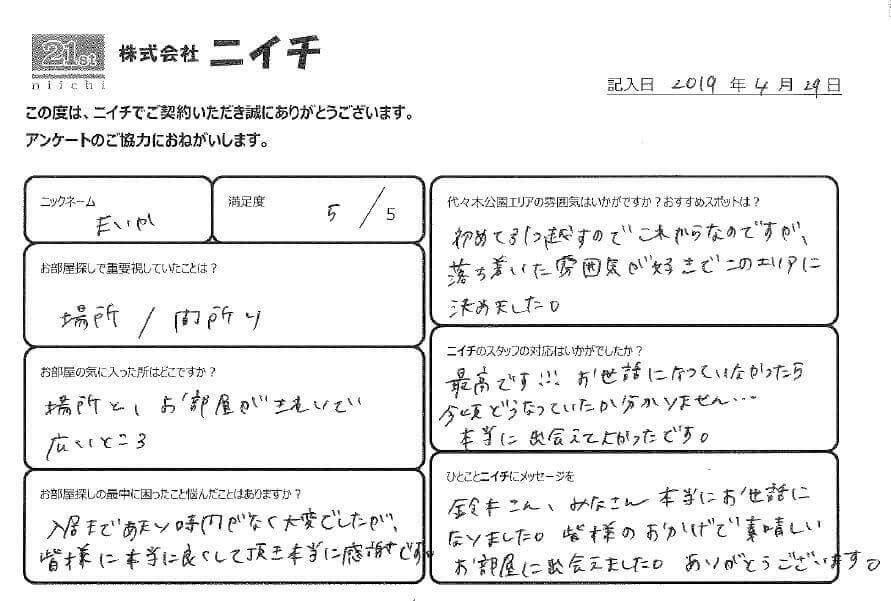 21st
niichi
株式会社 ニイチ
記入日 2019 年 4 月 29 日
この度は、ニイチでご契約いただき誠にありがとうございます。
アンケートのご協力におねがいします。
ニックネーム
まいやん
満足度
5 / 5
お部屋探しで重要視していたことは?
場所 / 間所り
お部屋の気に入った所はどこですか?
場所と、お部屋がきれいで
広いところ
お部屋探しの最中に困ったこと悩んだことはありますか?
入居まであまり時間がなく大変でしたが、
皆様に本当に良くして頂き本当に感謝です。
代々木公園エリアの雰囲気はいかがですか?おすすめスポットは?
初めて引っ越すのでこれからなのですが、
落ち着いた雰囲気が好きでこのエリアに
決めました。
ニイチのスタッフの対応はいかがでしたか?
最高です!!! お世話になっていなかったら
今頃どうなっていたか分かりません…
本当に出会えてよかったです。
ひとことニイチにメッセージを
鈴木さん、みなさん本当にお世話に
なりました。皆様のおかげで素晴しい
お部屋に出会えました。ありがとうございます。